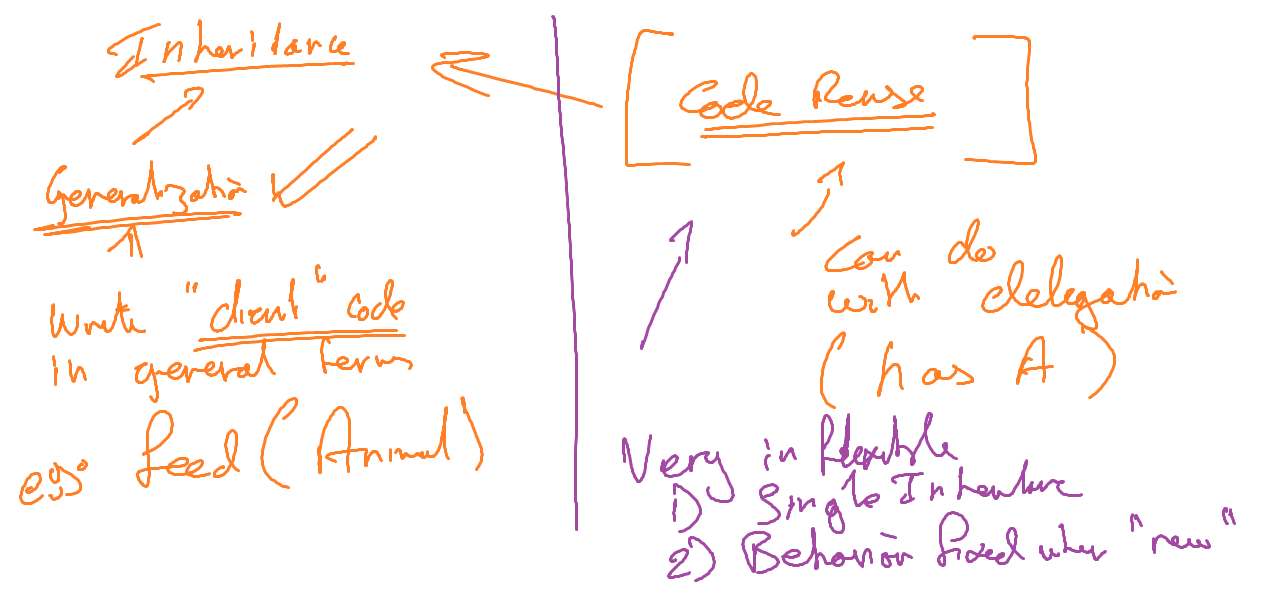 Inheritance
Generalization
Write "client" code
in general terms
eg: feed(Animal)
Code Reuse
Can do
with delegation
(has A)
Very inflexible
1) Single Inheritance
2) Behavior fixed when "new"